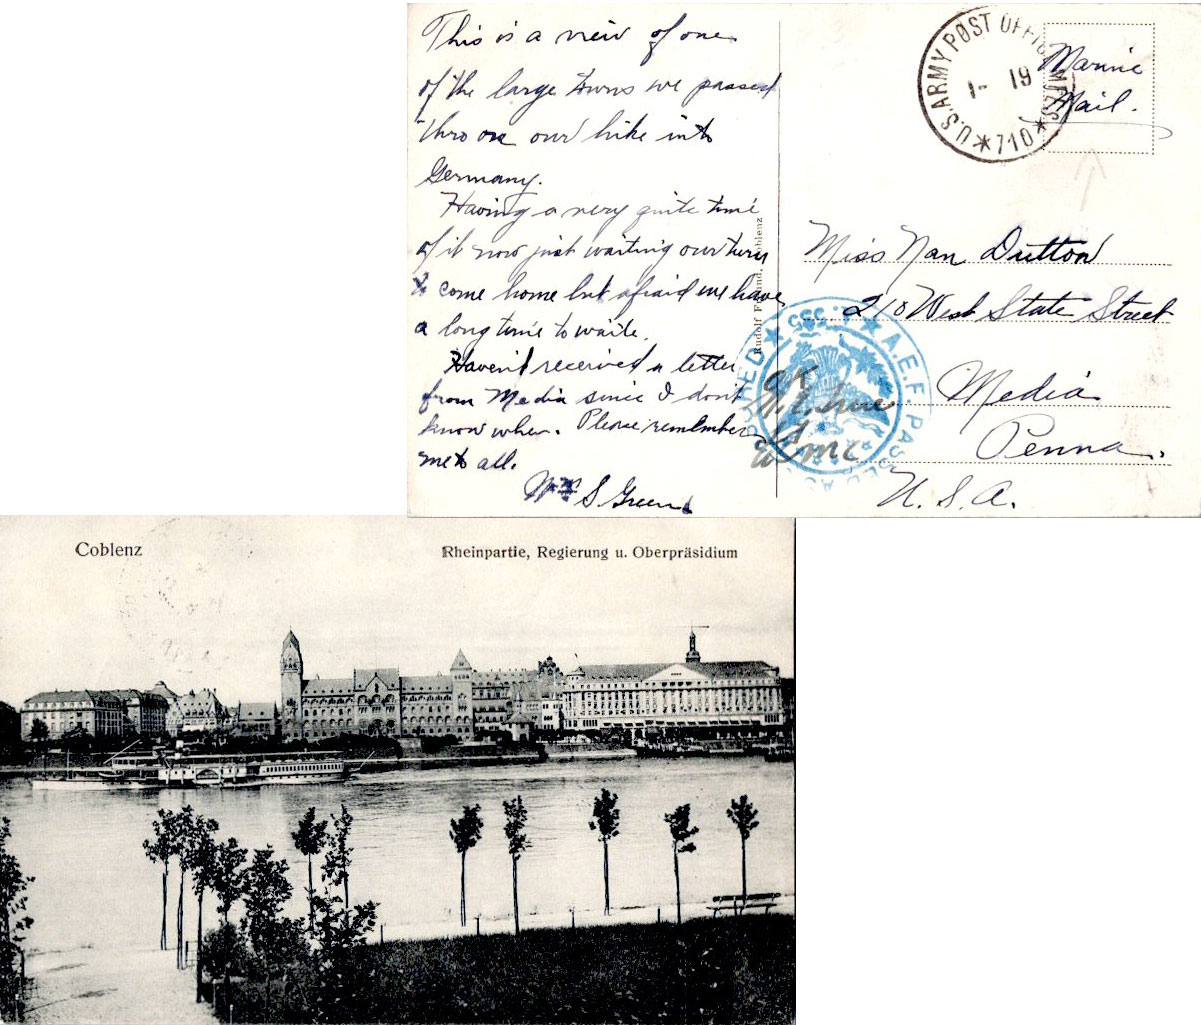 This is a view of one
of the large towns we passed
thro on our hike into
Germany.
Having a very quite time
of it now just waiting our turn
to come home but afraid we have
a long time to waite.
Haven't received a letter
from Media since I don't
know when. Please remember
me to all.
Wm S Green
Rudolf Coblenz
U.S. ARMY POST OFFICE M.P.E.S.
1- 19
*710*
Marine
Mail.
Miss Nan Dutton
210 West State Street
Media
Penna.
U. S. A.
A.E.F. PASSED AS CENSORED
OK
USMC
Coblenz
Rheinpartie, Regierung u. Oberpräsidium